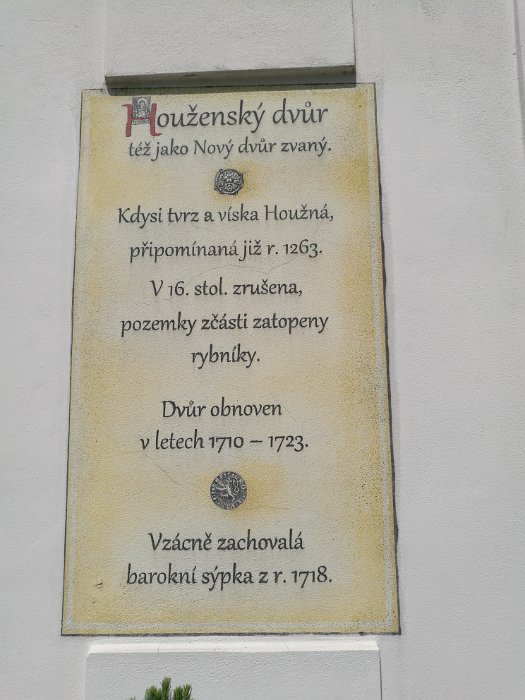 Houženský dvůr
též jako Nový dvůr zvaný.
Kdysi tvrz a víska Houžná,
připomínaná již r. 1263.
V 16. stol. zrušena,
pozemky zčásti zatopeny
rybníky.
Dvůr obnoven
v letech 1710 – 1723.
Vzácně zachovalá
barokní sýpka z r. 1718.